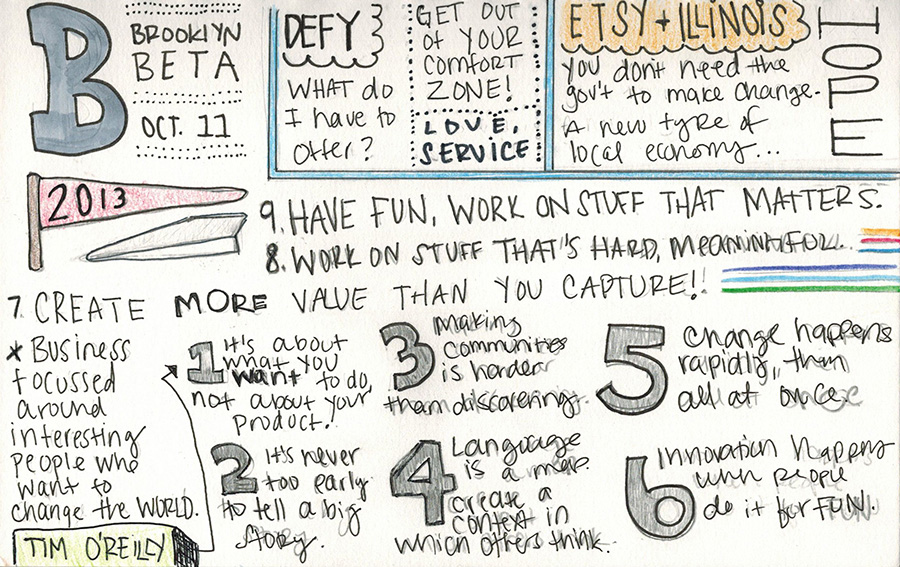 B
BROOKLYN
BETA
OCT. 11
2013
DEFY
WHAT do
I have to
offer?
GET OUT
of YOUR
COMFORT
ZONE!
LOVE,
SERVICE
ETSY + ILLINOIS
you don't need the
gov't to make change.
A new type of
local economy...
HOPE
9. HAVE FUN, WORK ON STUFF THAT MATTERS.
8. WORK ON STUFF THAT'S HARD, MEANINGFUL.
7. CREATE MORE VALUE THAN YOU CAPTURE!!
* BUSINESS
focussed
around
interesting
people who
want to
change the WORLD.
TIM O'REILLY
1 It's about
what you
want to do,
not about your
product.
2 It's never
too early
to tell a big
story.
3 Making
communities
is harder
than discovering.
4 Language
is a map.
Create a
context in
which others think.
5 Change happens
rapidly, then
all at once.
6 Innovation happens
when people
do it for FUN.